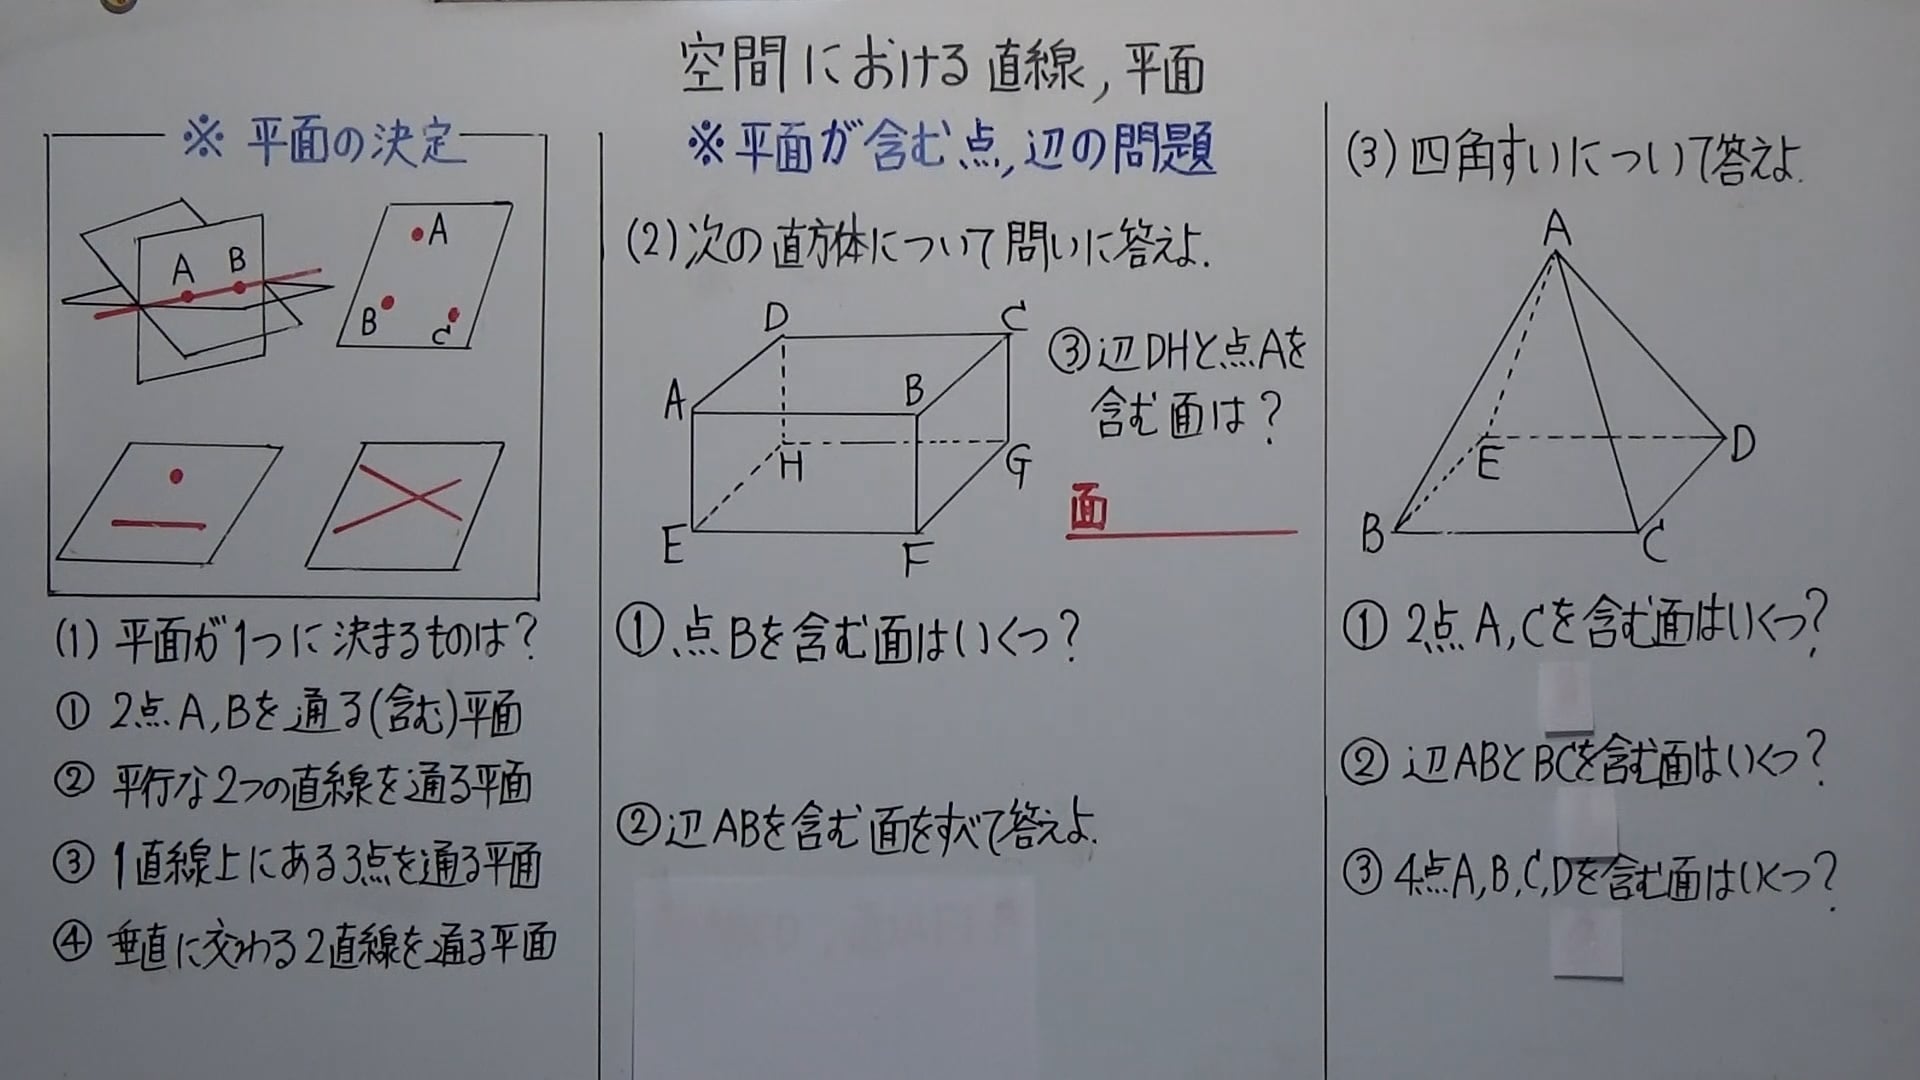 空間における直線,平面
※平面の決定
A
B
A
B
C
(1)平面が1つに決まるものは?
① 2点A,Bを通る(含む)平面
② 平行な2つの直線を通る平面
③ 1直線上にある3点を通る平面
④ 垂直に交わる2直線を通る平面
※平面が含む点,辺の問題
(2)次の直方体について問いに答えよ.
D
C
A
B
H
G
E
F
③辺DHと点Aを
含む面は?
面
①点Bを含む面はいくつ?
②辺ABを含む面をすべて答えよ.
(3)四角すいについて答えよ.
A
E
D
B
C
① 2点A,Cを含む面はいくつ?
② 辺ABとBCを含む面はいくつ?
③ 4点A,B,C,Dを含む面はいくつ?